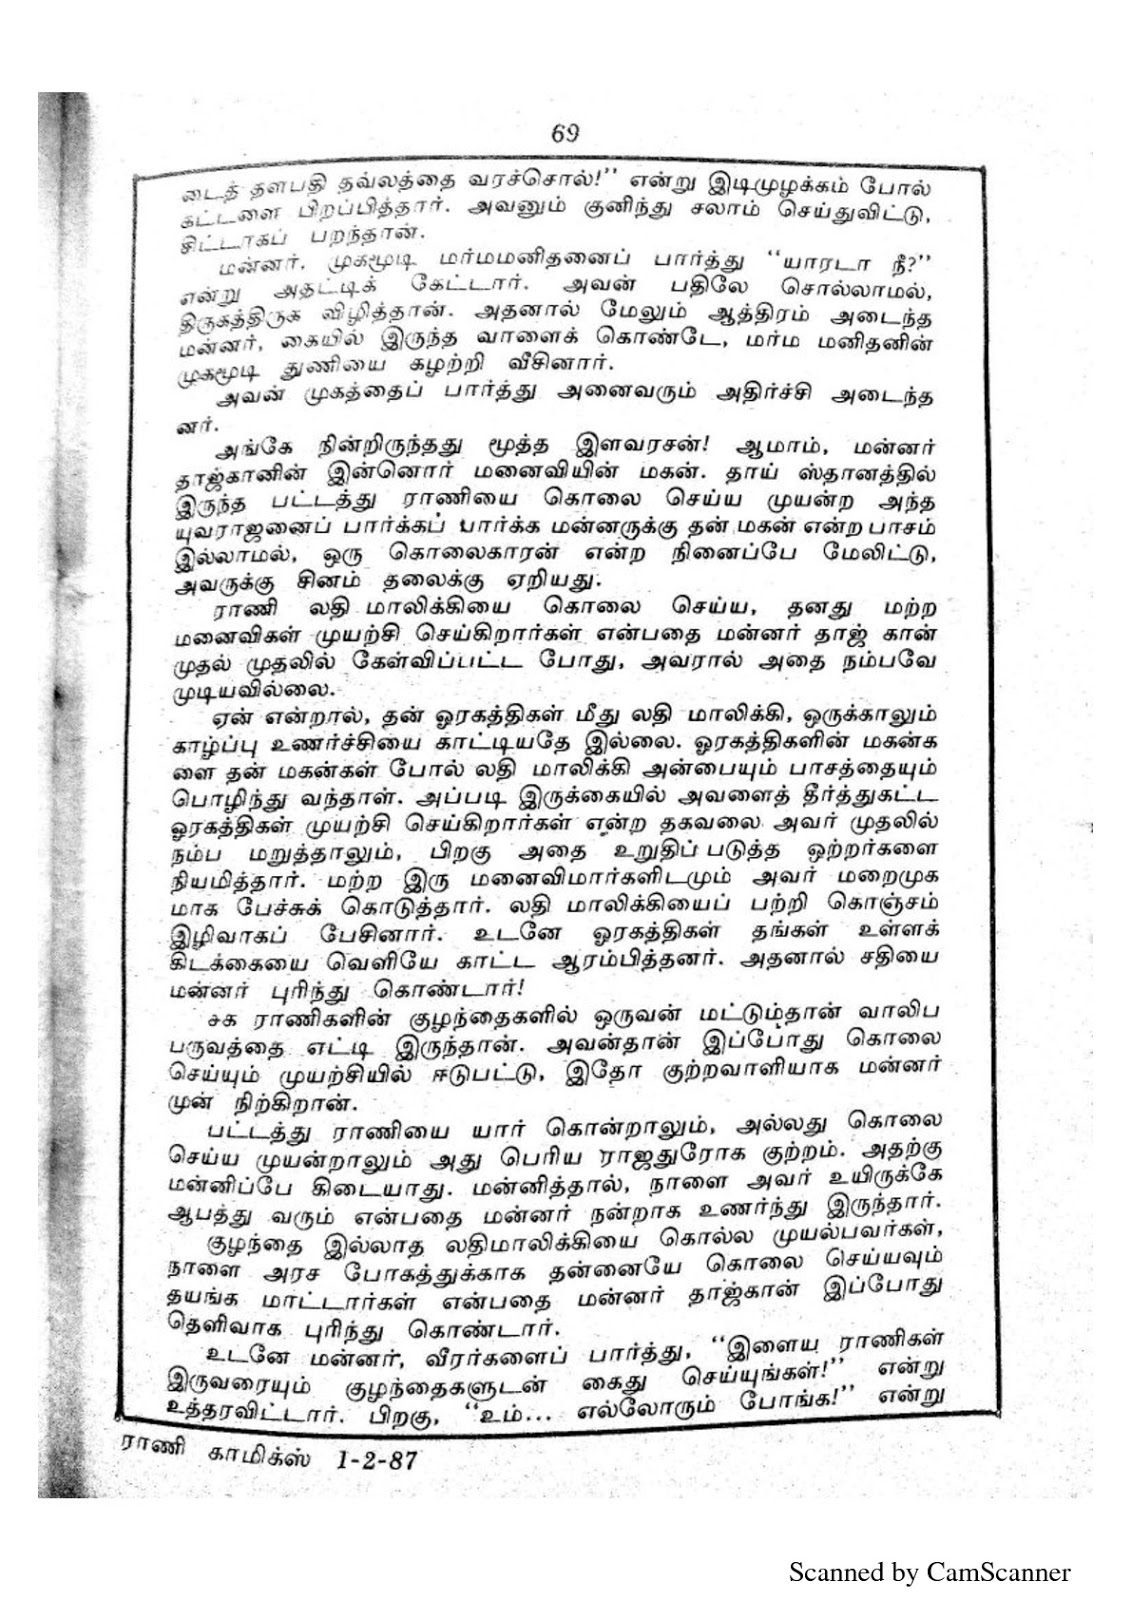 69
டைத் தளபதி தவ்லத்தை வரச்சொல்!'' என்று இடிமுழக்கம் போல்
கட்டளை பிறப்பித்தார். அவனும் குனிந்து சலாம் செய்துவிட்டு,
சிட்டாகப் பறந்தான்.
மன்னர், முகமூடி மர்மமனிதனைப் பார்த்து ''யாரடா நீ?''
என்று அதட்டிக் கேட்டார். அவன் பதிலே சொல்லாமல்,
திருகத்திருக விழித்தான். அதனால் மேலும் ஆத்திரம் அடைந்த
மன்னர், கையில் இருந்த வாளைக் கொண்டே, மர்ம மனிதனின்
முகமூடி துணியை கழற்றி வீசினார்.
அவன் முகத்தைப் பார்த்து அனைவரும் அதிர்ச்சி அடைந்த
னர்.
அங்கே நின்றிருந்தது மூத்த இளவரசன்! ஆமாம், மன்னர்
தாஜ்கானின் இன்னொர் மனைவியின் மகன். தாய் ஸ்தானத்தில்
இருந்த பட்டத்து ராணியை கொலை செய்ய முயன்ற அந்த
யுவராஜனைப் பார்க்கப் பார்க்க மன்னருக்கு தன் மகன் என்ற பாசம்
இல்லாமல், ஒரு கொலைகாரன் என்ற நினைப்பே மேலிட்டு,
அவருக்கு சினம் தலைக்கு ஏறியது.
ராணி லதி மாலிக்கியை கொலை செய்ய, தனது மற்ற
மனைவிகள் முயற்சி செய்கிறார்கள் என்பதை மன்னர் தாஜ் கான்
முதல் முதலில் கேள்விப்பட்ட போது, அவரால் அதை நம்பவே
முடியவில்லை.
ஏன் என்றால், தன் ஓரகத்திகள் மீது லதி மாலிக்கி, ஒருக்காலும்
காழ்ப்பு உணர்ச்சியை காட்டியதே இல்லை. ஓரகத்திகளின் மகன்க
ளை தன் மகன்கள் போல் லதி மாலிக்கி அன்பையும் பாசத்தையும்
பொழிந்து வந்தாள். அப்படி இருக்கையில் அவளைத் தீர்த்துகட்ட
ஓரகத்திகள் முயற்சி செய்கிறார்கள் என்ற தகவலை அவர் முதலில்
நம்ப மறுத்தாலும், பிறகு அதை உறுதிப் படுத்த ஒற்றர்களை
நியமித்தார். மற்ற இரு மனைவிமார்களிடமும் அவர் மறைமுக
மாக பேச்சுக் கொடுத்தார். லதி மாலிக்கியைப் பற்றி கொஞ்சம்
இழிவாகப் பேசினார். உடனே ஓரகத்திகள் தங்கள் உள்ளக்
கிடக்கையை வெளியே காட்ட ஆரம்பித்தனர். அதனால் சதியை
மன்னர் புரிந்து கொண்டார்!
சக ராணிகளின் குழந்தைகளில் ஒருவன் மட்டும்தான் வாலிப
பருவத்தை எட்டி இருந்தான். அவன்தான் இப்போது கொலை
செய்யும் முயற்சியில் ஈடுபட்டு, இதோ குற்றவாளியாக மன்னர்
முன் நிற்கிறான்.
பட்டத்து ராணியை யார் கொன்றாலும், அல்லது கொலை
செய்ய முயன்றாலும் அது பெரிய ராஜதுரோக குற்றம். அதற்கு
மன்னிப்பே கிடையாது. மன்னித்தால், நாளை அவர் உயிருக்கே
ஆபத்து வரும் என்பதை மன்னர் நன்றாக உணர்ந்து இருந்தார்.
குழந்தை இல்லாத லதிமாலிக்கியை கொல்ல முயல்பவர்கள்,
நாளை அரச போகத்துக்காக தன்னையே கொலை செய்யவும்
தயங்க மாட்டார்கள் என்பதை மன்னர் தாஜ்கான் இப்போது
தெளிவாக புரிந்து கொண்டார்.
உடனே மன்னர், வீரர்களைப் பார்த்து, ''இளைய ராணிகள்
இருவரையும் குழந்தைகளுடன் கைது செய்யுங்கள்!'' என்று
உத்தரவிட்டார். பிறகு, ''உம்... எல்லோரும் போங்க!'' என்று
ராணி காமிக்ஸ் 1-2-87
Scanned by CamScanner